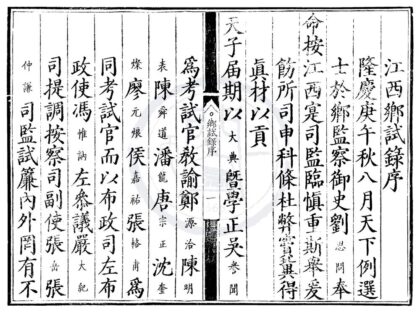 江西鄉試錄序
隆慶庚午秋八月天下例選
士於鄉監察御史劉思問奉
命按江西寔司監臨慎重斯舉爰
飭所司申科條杜弊竇冀得
眞材以貢
天子屆期以大典暨學正吳參聞
鄉試錄序
一
爲考試官教諭鄭源洽陳明
表陳舜道潘龍唐宗正沈奎
燦廖元繽侯嘉祐張裕甫爲
同考試官而以布政司左布
政使馮惟訥左參議嚴大紀
司提調按察司副使張岳張
仲謙司監試簾內外罔有不